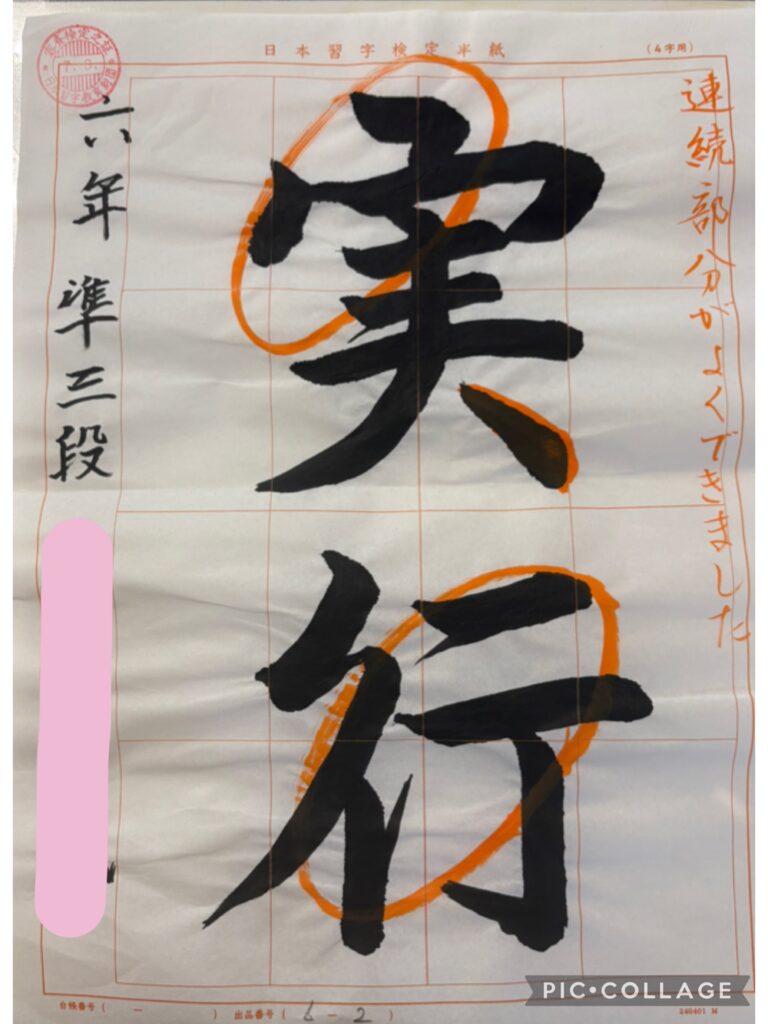 日本習字検定半紙
(4字用)
連続部分がよくできました
実行
六年 準三段
台帳番号( ー )
出品番号( 6 ー 2 )
240401 M
PIC•COLLAGE